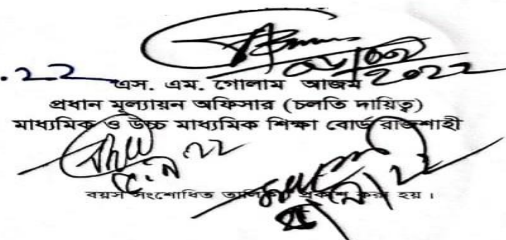 ২০২২
.২২
এস. এম. গোলাম আজম
প্রধান মূল্যায়ন অফিসার (চলতি দায়িত্ব)
মাধ্যমিক ও উচ্চ মাধ্যমিক শিক্ষা বোর্ড রাজশাহী
বয়স সংশোধিত তালিকা প্রকাশ করা হয়।